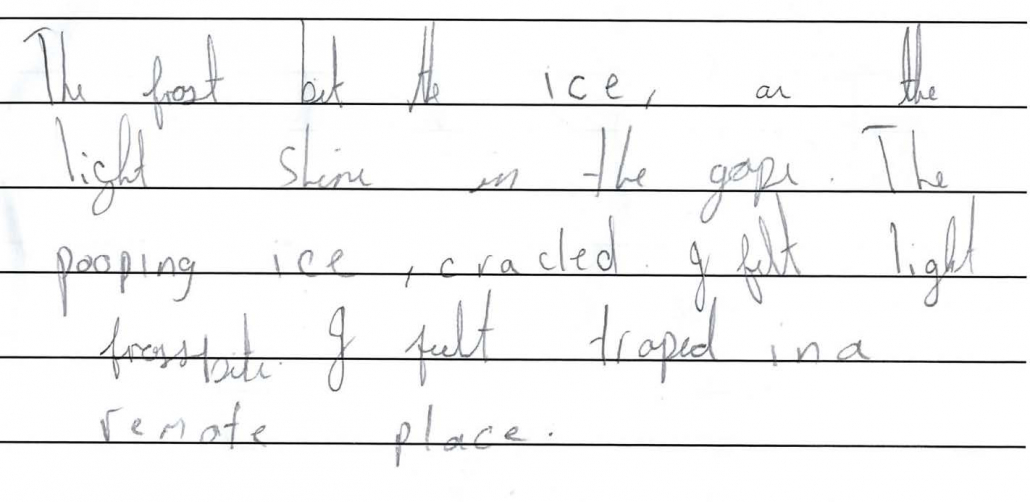 The frost bit the ice, as the
light shine in the gaps. The
pooping ice, cracled. I felt light
frosstbite. I feelt traped in a
remote place.